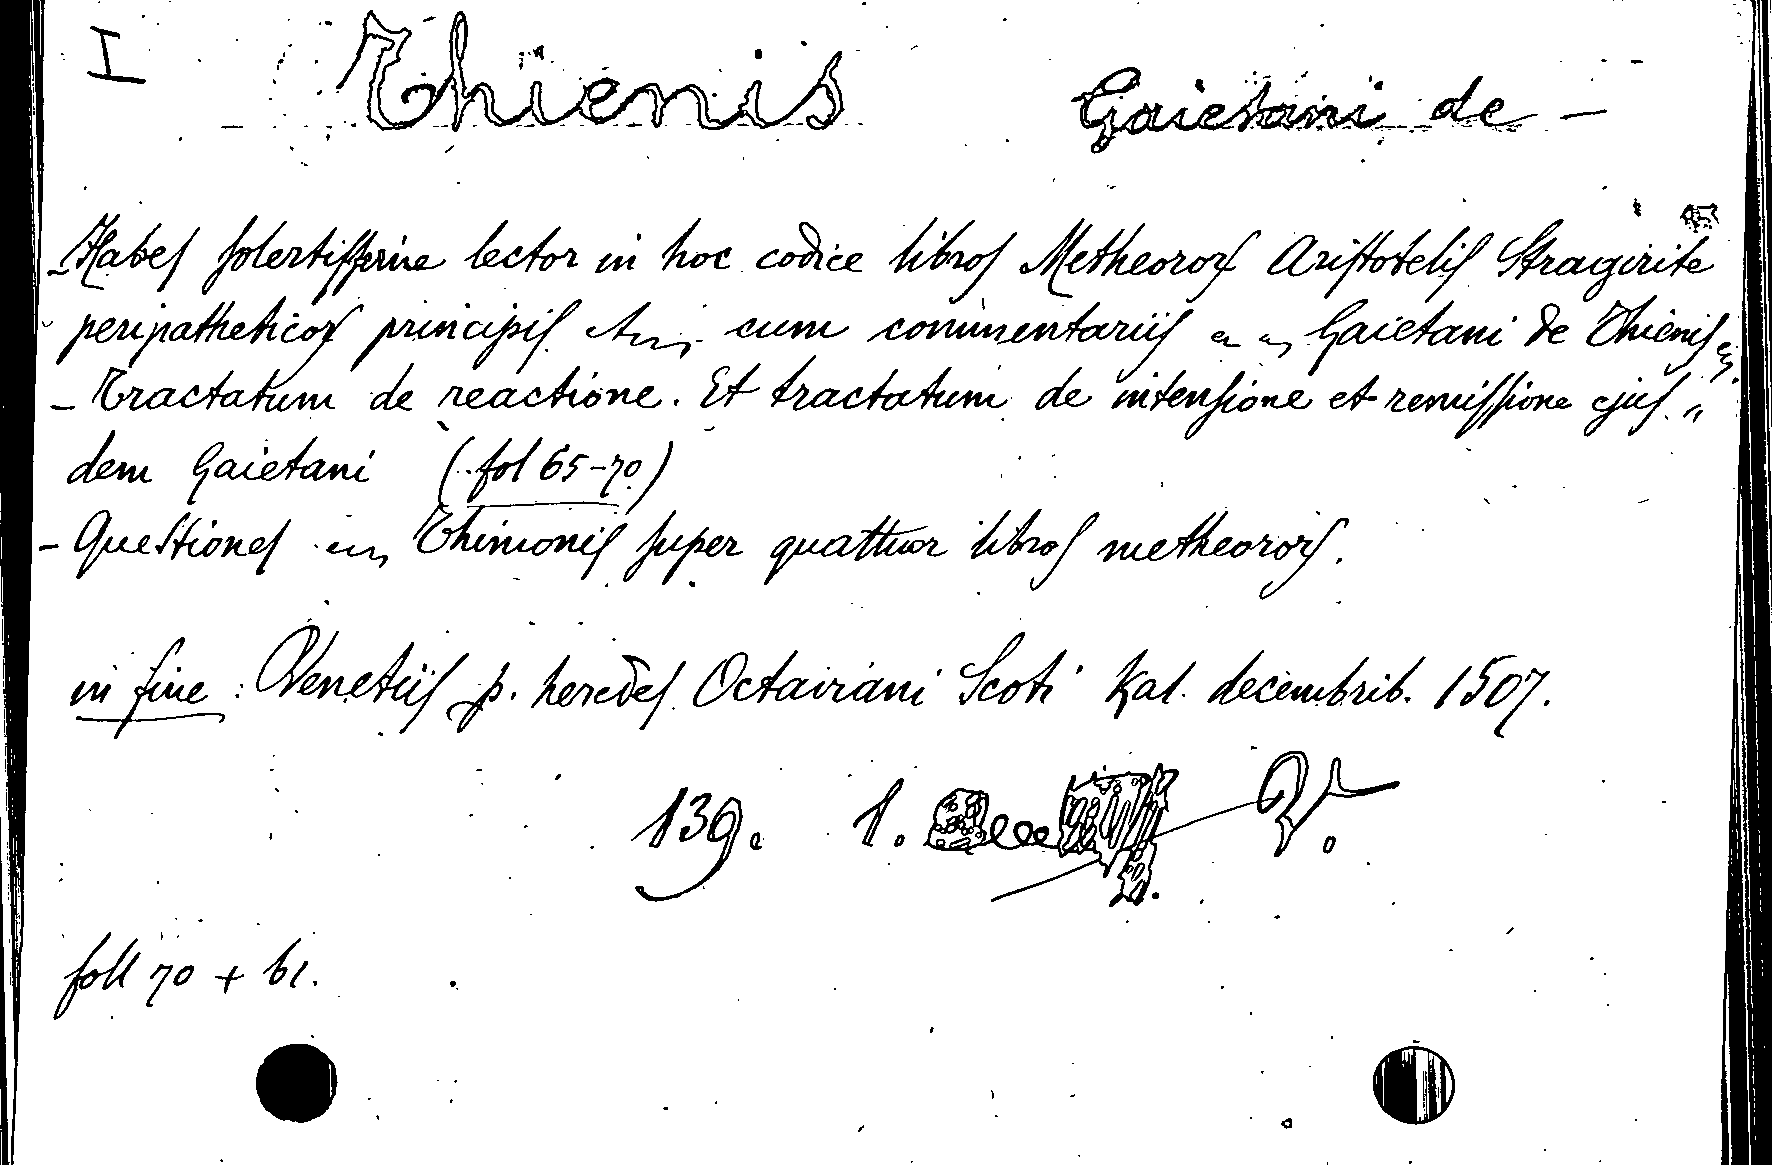 I Thienis Gaietani de -
- Habeſ ſolertiſſime lector in hoc codice libroſ Metheororꝝ Ariſtoteliſ Stragirite
peripatheticoꝝ principiſ cum commentariiſ Gaietani de Thieniſ
- Tractatum de reactione. Et tractatum de intenſione et remiſſione ejuſ "
dem Gaietani (fol 65-70)
- Queſtioneſ Thimoniſ ſuper quattuor libroſ metheororꝝ.
in fine: Venetiiſ p. heredeſ Octaviani Scoti Kal. decembrib. 1507.
139. 1. V.
foll 70 + 61.